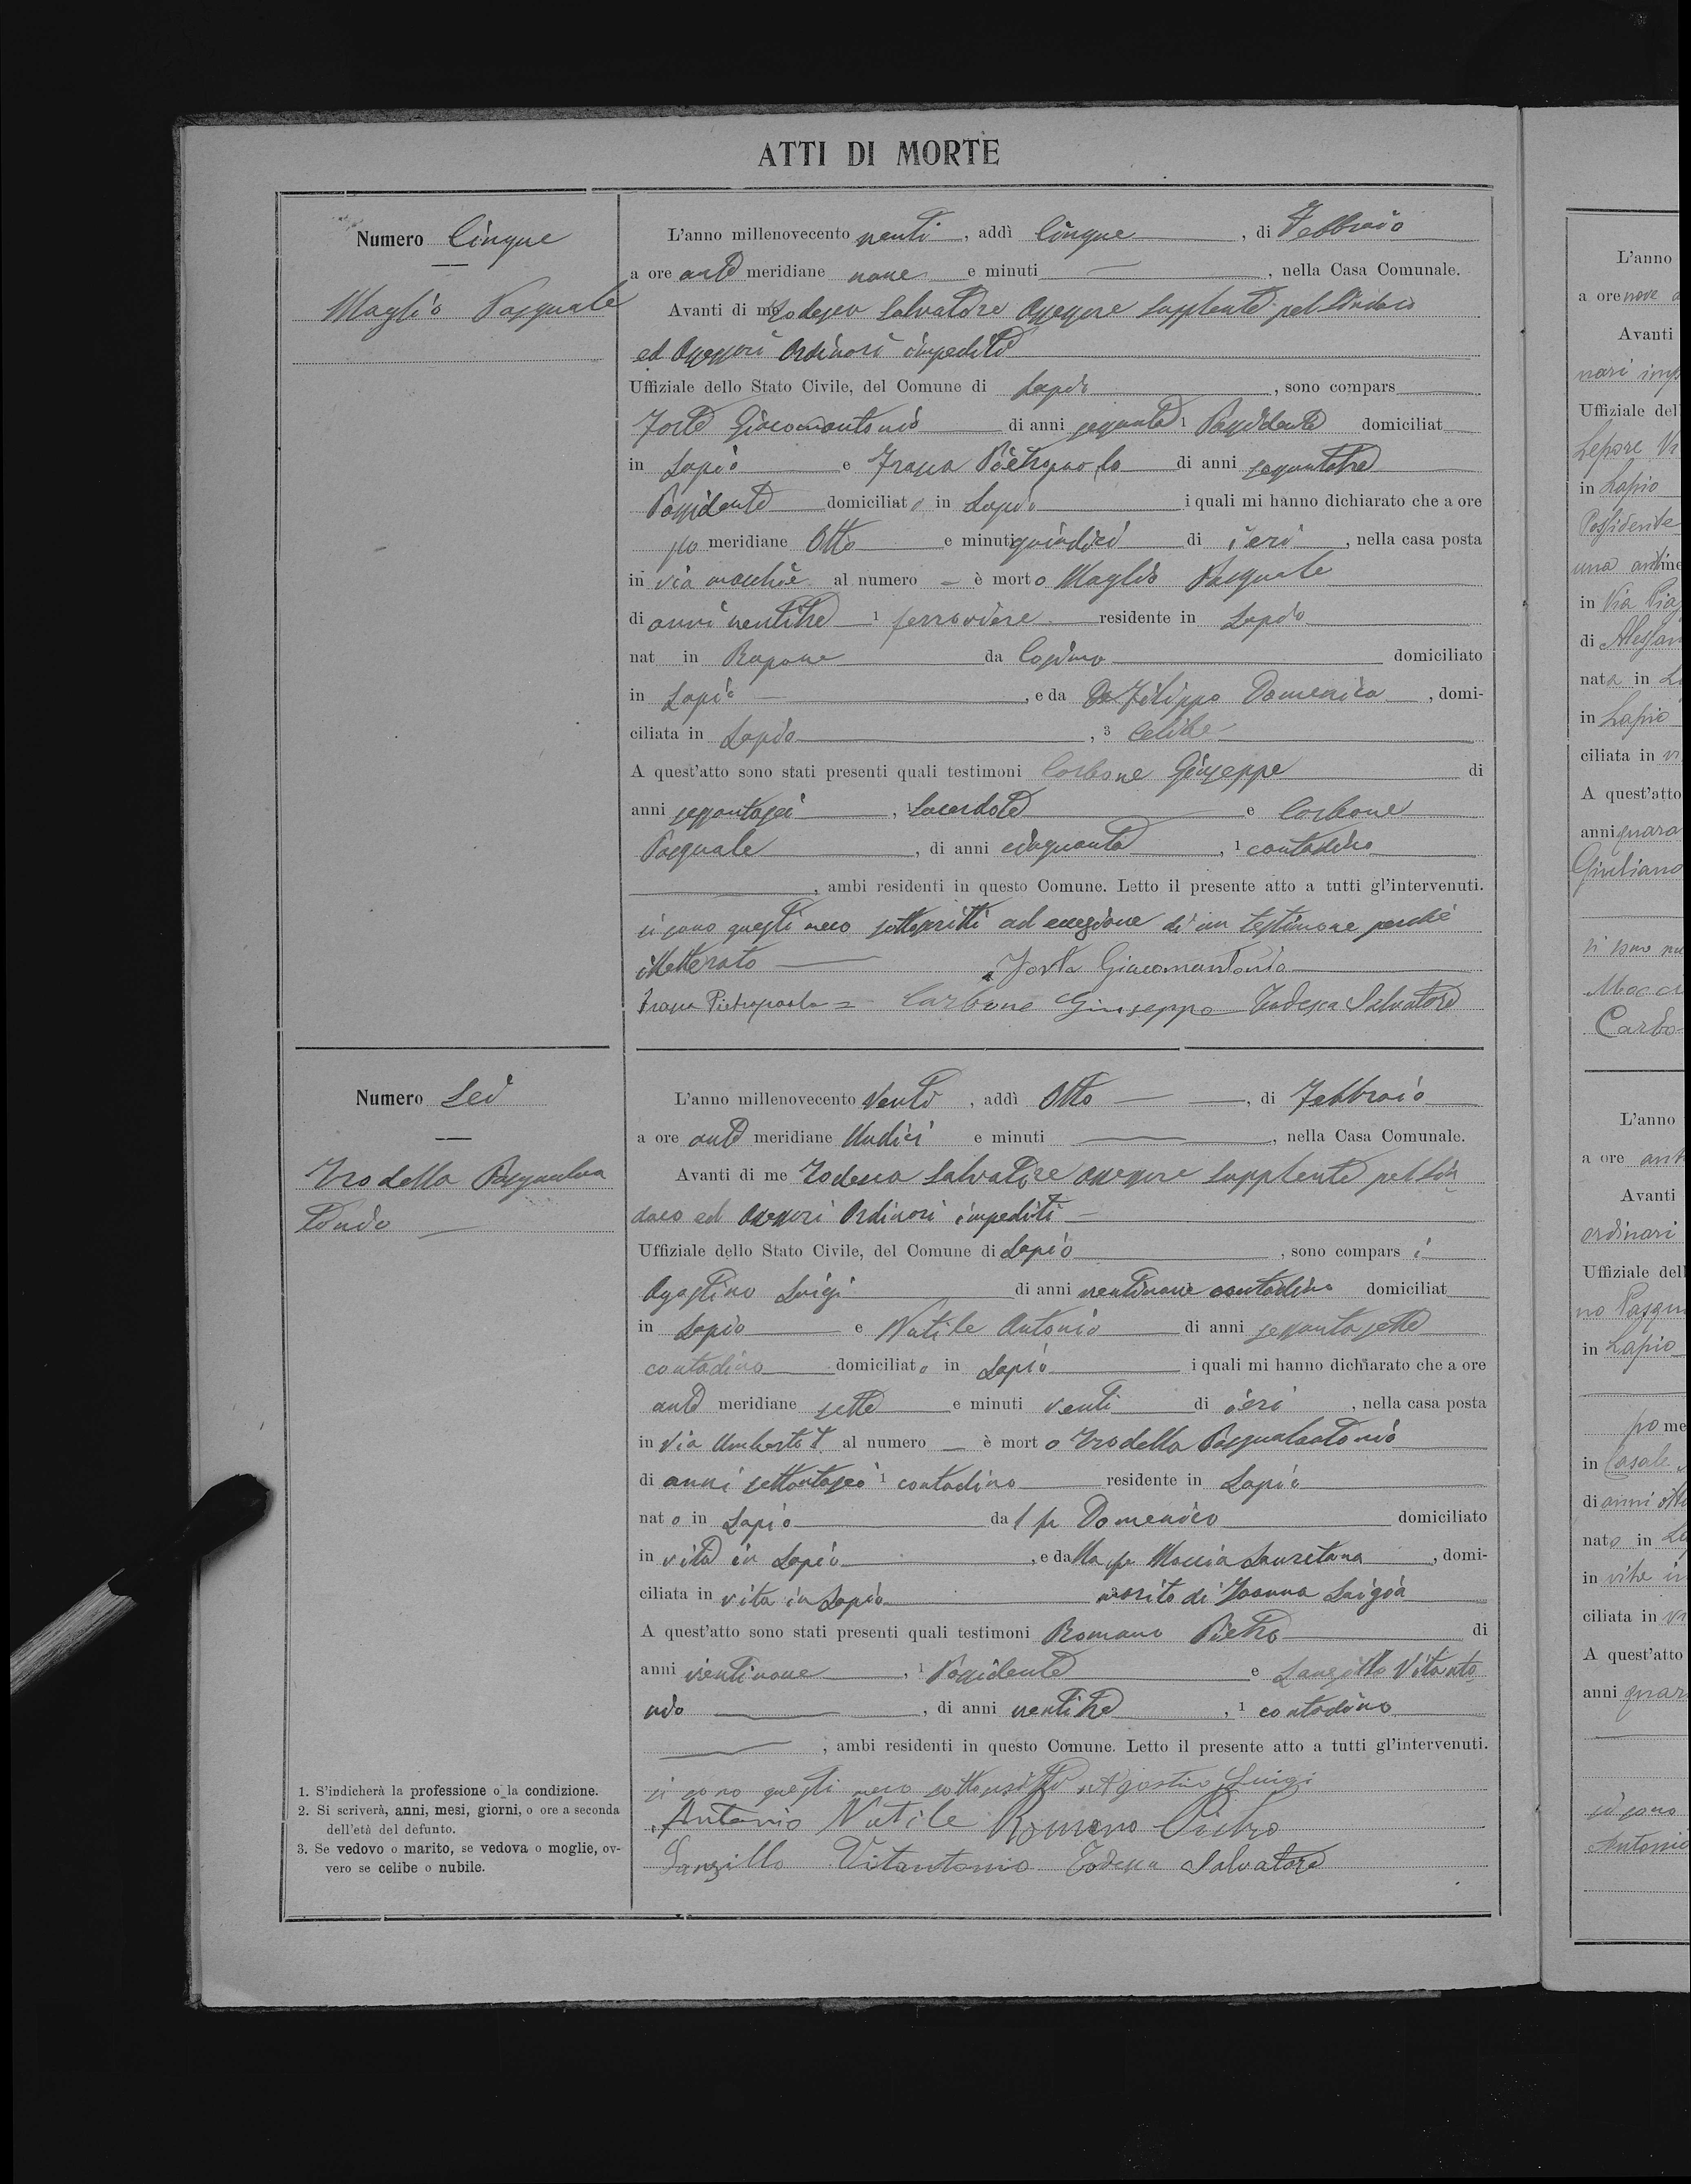 ATTI DI MORTE
Numero Cinque
Maglio Pasquale
L'anno millenovecento venti, addì Cinque, di Febbraio
a ore ante meridiane nove e minuti —, nella Casa Comunale.
Avanti di me Todesca Salvatore Assessore supplente pel Sindaco
ed Assessori Ordinari impediti
Uffiziale dello Stato Civile, del Comune di Lapio, sono compars
Forte Giacomantonio di anni sessanta 1 Possidente domiciliat
in Lapio e Frasca Pietropaolo di anni sessantatre
Possidente domiciliato in Lapio i quali mi hanno dichiarato che a ore
po meridiane Otto e minuti quindici di ieri, nella casa posta
in via al numero — è morto Maglio Pasquale
di anni ventitre 1 ferroviere residente in Lapio
nat in Rapone da Cosimo domiciliato
in Lapio, e da De Filippo Domenica, domi-
ciliata in Lapio, 3 Celibe
A quest'atto sono stati presenti quali testimoni Carbone Giuseppe di
anni sessantasei, 1 Sacerdote e Carbone
Pasquale, di anni cinquanta, 1 contadino
, ambi residenti in questo Comune. Letto il presente atto a tutti gl'intervenuti.
si sono questi meco sottoscritti ad eccezione di un testimone perché
illetterato — Forte Giacomantonio
Frasca Pietropaolo = Carbone Giuseppe Todesca Salvatore
Numero Sei
Trodella Pasqualan
tonio —
L'anno millenovecento Venti, addì Otto —, di Febbraio
a ore ante meridiane Undici e minuti —, nella Casa Comunale.
Avanti di me Todesca Salvatore Assessore supplente pel Sin
daco ed Assessori Ordinari impediti —
Uffiziale dello Stato Civile, del Comune di Lapio, sono compars i
Agostino Luigi di anni ventinove contadino domiciliat
in Lapio e Natile Antonio di anni sessantasette
contadino domiciliato in Lapio i quali mi hanno dichiarato che a ore
ante meridiane sette e minuti venti di ieri, nella casa posta
in Via Umberto I al numero — è morto Trodella Pasqualantonio
di anni settantasei 1 contadino residente in Lapio
nato in Lapio dal fu Domenico domiciliato
in vita in Lapio, e dalla fu Moccia Lauretana, domi-
ciliata in vita in Lapio marito di Ioanna Luigia
A quest'atto sono stati presenti quali testimoni Romano Pietro di
anni ventinove, 1 Possidente e Lanzillo Vitanto
nio —, di anni ventitre, 1 contadino
—, ambi residenti in questo Comune. Letto il presente atto a tutti gl'intervenuti.
si sono questi meco sottoscritti Agostino Luigi
Antonio Natile Romano Pietro
Lanzillo Vitantonio Todesca Salvatore
1. S'indicherà la professione o la condizione.
2. Si scriverà, anni, mesi, giorni, o ore a seconda
dell'età del defunto.
3. Se vedovo o marito, se vedova o moglie, ov-
vero se celibe o nubile.
L'anno
a ore nove
Avanti
nari imp
Uffiziale del
Lepore
in Lapio
Possidente
una antime
in Via
di Alessan
nata in
in Lapio
ciliata in
A quest'atto
anni quara
Giuliano
si sono
Carbo
L'anno
a ore ant
Avanti
ordinari
Uffiziale dell
no Pasqu
in Lapio
po me
in Casale
di anni
nato in
in vita in
ciliata in
A quest'atto
anni quar
si sono
Antonio